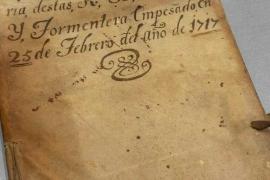 ria destas R,
Y Formentera Empesado, en
25 de Febrero del año de 1717